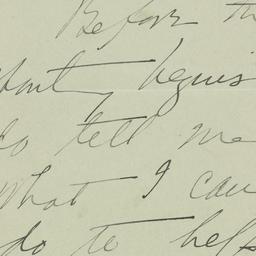 Before th
begins
do tell me
What I can
do to help